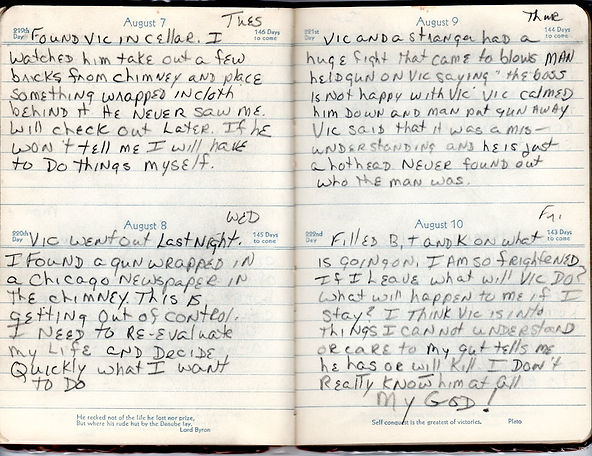 August 7
Tues
219th
Day
146 Days
to come
Found Vic in cellar. I
watched him take out a few
bricks from chimney and place
something wrapped in cloth
behind it. He never saw me.
Will check out later. If he
won't tell me I will have
to do things myself.
August 8
Wed
220th
Day
145 Days
to come
Vic went out last night.
I found a gun wrapped in
a Chicago newspaper in
the chimney. This is
getting out of control.
I need to re-evaluate
my life and decide
quickly what I want
to do
He recked not of the life he lost nor prize,
But where his rude hut by the Danube lay.
Lord Byron
August 9
Thur
221st
Day
144 Days
to come
Vic and a stranger had a
huge fight that came to blows man
held gun on Vic saying "the boss
is not happy with Vic" Vic calmed
him down and man put gun away
Vic said that it was a mis-
understanding and he is just
a hothead never found out
who the man was.
August 10
Fri
222nd
Day
143 Days
to come
Filled B, T and K on what
is going on. I am so frightened
If I leave what will Vic do?
What will happen to me if I
stay? I think Vic is into
things I cannot understand
or care to my gut tells me
he has or will kill. I don't
really know him at all
My God!
Self conquest is the greatest of victories.
Plato